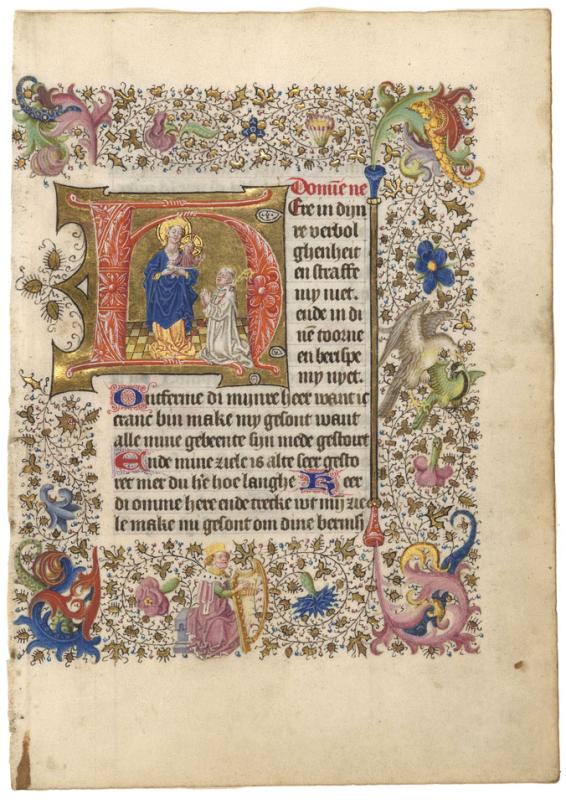 Domine ne
Ere in dijn
re verbol
ghenheit
en straffe
my niet.
ende in di
nē toorne
en berispe
my nyet.
Ontferme di mijnre heer want ic
cranc bin make my gesont want
alle mine gebeente sijn mede gestoert
Ende mine ziele is alte seer gesto
ret mer du hēe hoe langhe Keer
di omme here ende trecke wt mij zie
le make mi gesont om dine bermh